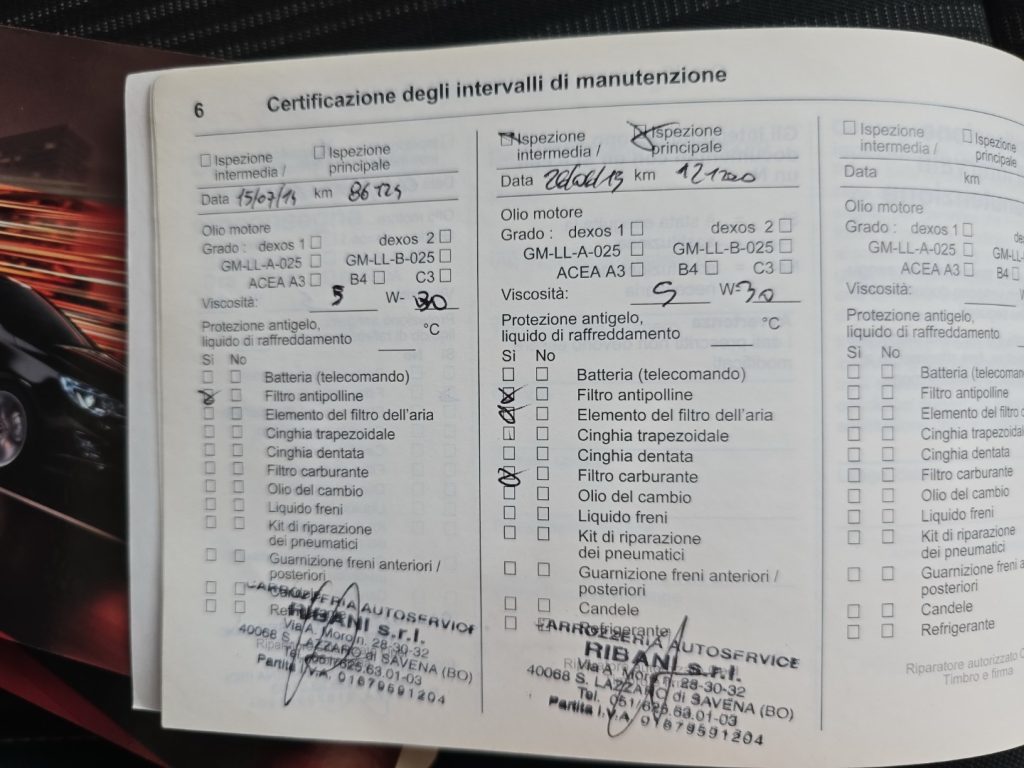 6
Certificazione degli intervalli di manutenzione
Ispezione intermedia /
Ispezione principale
Data 15/07/14 km
Olio motore
Grado : dexos 1
dexos 2
GM-LL-A-025
GM-LL-B-025
ACEA A3
B4
C3
Viscosità: 5 W- 30
Protezione antigelo,
liquido di raffreddamento
°C
Si No
Batteria (telecomando)
Filtro antipolline
Elemento del filtro dell'aria
Cinghia trapezoidale
Cinghia dentata
Filtro carburante
Olio del cambio
Liquido freni
Kit di riparazione
dei pneumatici
Guarnizione freni anteriori /
posteriori
CARROZZERIA AUTOSERVICE
RIBANI s.r.l.
Via A. Moro n. 28-30-32
40068 S. LAZZARO di SAVENA (BO)
Tel. 051/625.63.01-03
Partita I.V.A. 01679591204
Ispezione intermedia /
Ispezione principale
Data km
Olio motore
Grado : dexos 1
dexos 2
GM-LL-A-025
GM-LL-B-025
ACEA A3
B4
C3
Viscosità: 5 W-30
Protezione antigelo,
liquido di raffreddamento
°C
Si No
Batteria (telecomando)
Filtro antipolline
Elemento del filtro dell'aria
Cinghia trapezoidale
Cinghia dentata
Filtro carburante
Olio del cambio
Liquido freni
Kit di riparazione
dei pneumatici
Guarnizione freni anteriori /
posteriori
Candele
Refrigerante
CARROZZERIA AUTOSERVICE
RIBANI s.r.l.
Via A. Moro n. 28-30-32
40068 S. LAZZARO di SAVENA (BO)
Tel. 051/625.63.01-03
Partita I.V.A. 01679591204
Ispezione intermedia /
Ispezione principale
Data
km
Olio motore
Grado : dexos 1
GM-LL-A-025
GM-LL-
ACEA A3
B4
Viscosità:
Protezione antigelo,
liquido di raffreddamento
Si No
Batteria (telecomand
Filtro antipolline
Elemento del filtro d
Cinghia trapezoidal
Cinghia dentata
Filtro carburante
Olio del cambio
Liquido freni
Kit di riparazione
dei pneumatici
Guarnizione freni a
posteriori
Candele
Refrigerante
Riparatore autorizzato
Timbro e firma